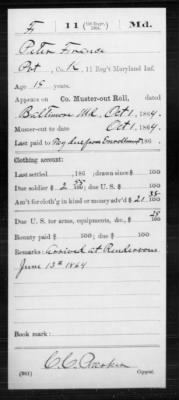 F | 11 (1st Regt. 1864) | Md.
Peter France
Pvt, Co. K, 11 Reg't Maryland Inf.
Age 18 years.
Appears on Co. Muster-out Roll, dated
Baltimore Md, Oct 1, 1864.
Muster-out to date Oct 1, 1864.
Last paid to 186 .
Clothing account:
Last settled , 186 ; drawn since $ 100
Due soldier $ 2 100; due U. S. $ 100
Am't for cloth'g in kind or money adv'd $ 21 38/100
Due U. S. for arms, equipments, &c., $ 28/100
Bounty paid $ 100; due $ 100
Remarks: Arrived at Rendezvous
June 13th 1864
Book mark:
(361) Copyist.